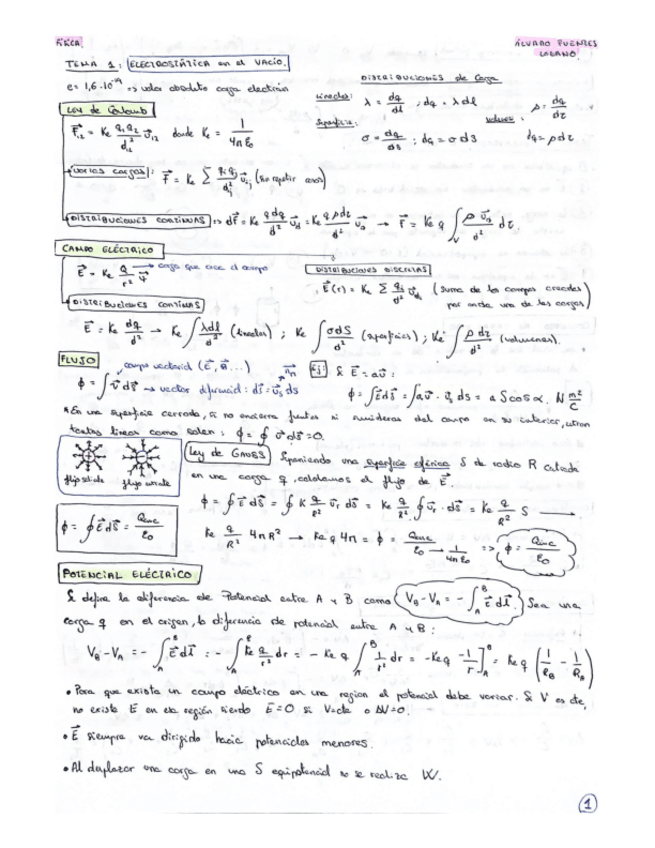 FÍSICA.
ÁLVARO FUENTES LOZANO.
TEMA 1: ELECTROSTÁTICA en el VACÍO.
e = 1,6·10⁻¹⁹ => valor absoluto carga electrón
DISTRIBUCIONES de Carga
Lineales: λ = dq/dl ; dq = λdl
Superficie: σ = dq/ds ; dq = σ dS
volumen: ρ = dq/dτ
dq = ρdτ
Ley de Coulomb
F₁₂ = Ke q₁q₂/d₁₂² u₁₂ donde Ke = 1/4πε₀
VARIAS CARGAS: F = Ke Σ qᵢqⱼ/dᵢⱼ² uᵢⱼ (sin repetir casos)
DISTRIBUCIONES CONTINUAS => dF = Ke q dq/d² u_d = Ke q ρdτ/d² u_d → F = Ke q ∫_V ρ u_d/d² dτ
CAMPO ELÉCTRICO
E = Ke q/r² u → carga que crea el campo
DISTRIBUCIONES DISCRETAS
E(r) = Ke Σ qᵢ/dᵢ² u_dᵢ (suma de los campos creados por cada una de las cargas)
DISTRIBUCIONES CONTINUAS
E = Ke dq/d² → Ke ∫ λdl/d² (lineales) ; Ke ∫ σdS/d² (superficies) ; Ke ∫ ρ dτ/d² (volumenes).
FLUJO
campo vectorial (E, B...)
φ = ∫ v ds → vector diferencial: ds = u_s ds
Ej: Si E = au:
φ = ∫E ds = ∫au · u_s ds = a S cos α. N m²/C
*En una superficie cerrada, si no encierra fuentes ni sumideros del campo en su interior, entran
tantas lineas como salen: φ = ∮ v ds = 0.
flujo saliente
flujo entrante
φ = ∮ E ds = Qenc/ε₀
Ley de GAUSS Suponiendo una superficie esférica S de radio R centrada
en una carga q, calculamos el flujo de E.
φ = ∮ E ds = ∮ K q/R² u_r ds = Ke q/R² ∮ u_r · ds = Ke q/R² S
Ke q/R² 4πR² → Ke q 4π = φ = Qenc/ε₀ → 1/4πε₀ => φ = Qenc/ε₀
POTENCIAL ELÉCTRICO
Se define la diferencia de Potencial entre A y B como V_B - V_A = - ∫_A^B E dl. Sea una
carga q en el origen, la diferencia de potencial entre A y B:
V_B - V_A = - ∫_A^B E dl = - ∫_A^B Ke q/r² dr = - Ke q ∫_A^B 1/r² dr = -Ke q -1/r ]_A^B = Ke q (1/R_B - 1/R_A)
• Para que exista un campo eléctrico en una region el potencial debe variar. Si V es cte,
no existe E en esa región siendo E = 0 si V=cte o ΔV=0.
• E siempre va dirigido hacia potenciales menores.
• Al desplazar una carga en una S equipotencial no se realiza W.
1